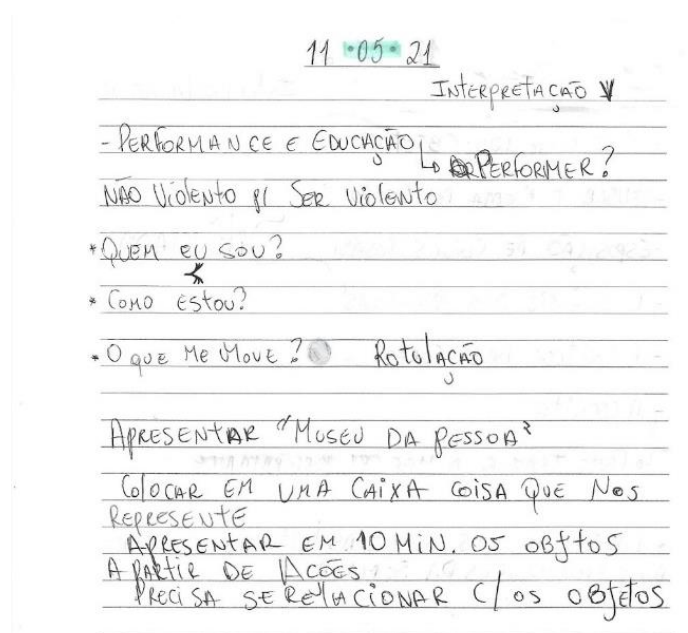 11 • 05 • 21
INTERPRETAÇÃO
- PERFORMANCE E EDUCAÇÃO
↳ PERFORMER?
NÃO VIOLENTO P/ SER VIOLENTO
* QUEM EU SOU?
* COMO ESTOU?
• O QUE ME MOVE? ROTULAÇÃO
APRESENTAR "MUSEU DA PESSOA"
COLOCAR EM UMA CAIXA COISA QUE NOS
REPRESENTE
APRESENTAR EM 10 MIN. OS OBJTOS
A PARTIR DE AÇÕES
PRECISA SE RELACIONAR C/ OS OBJETOS